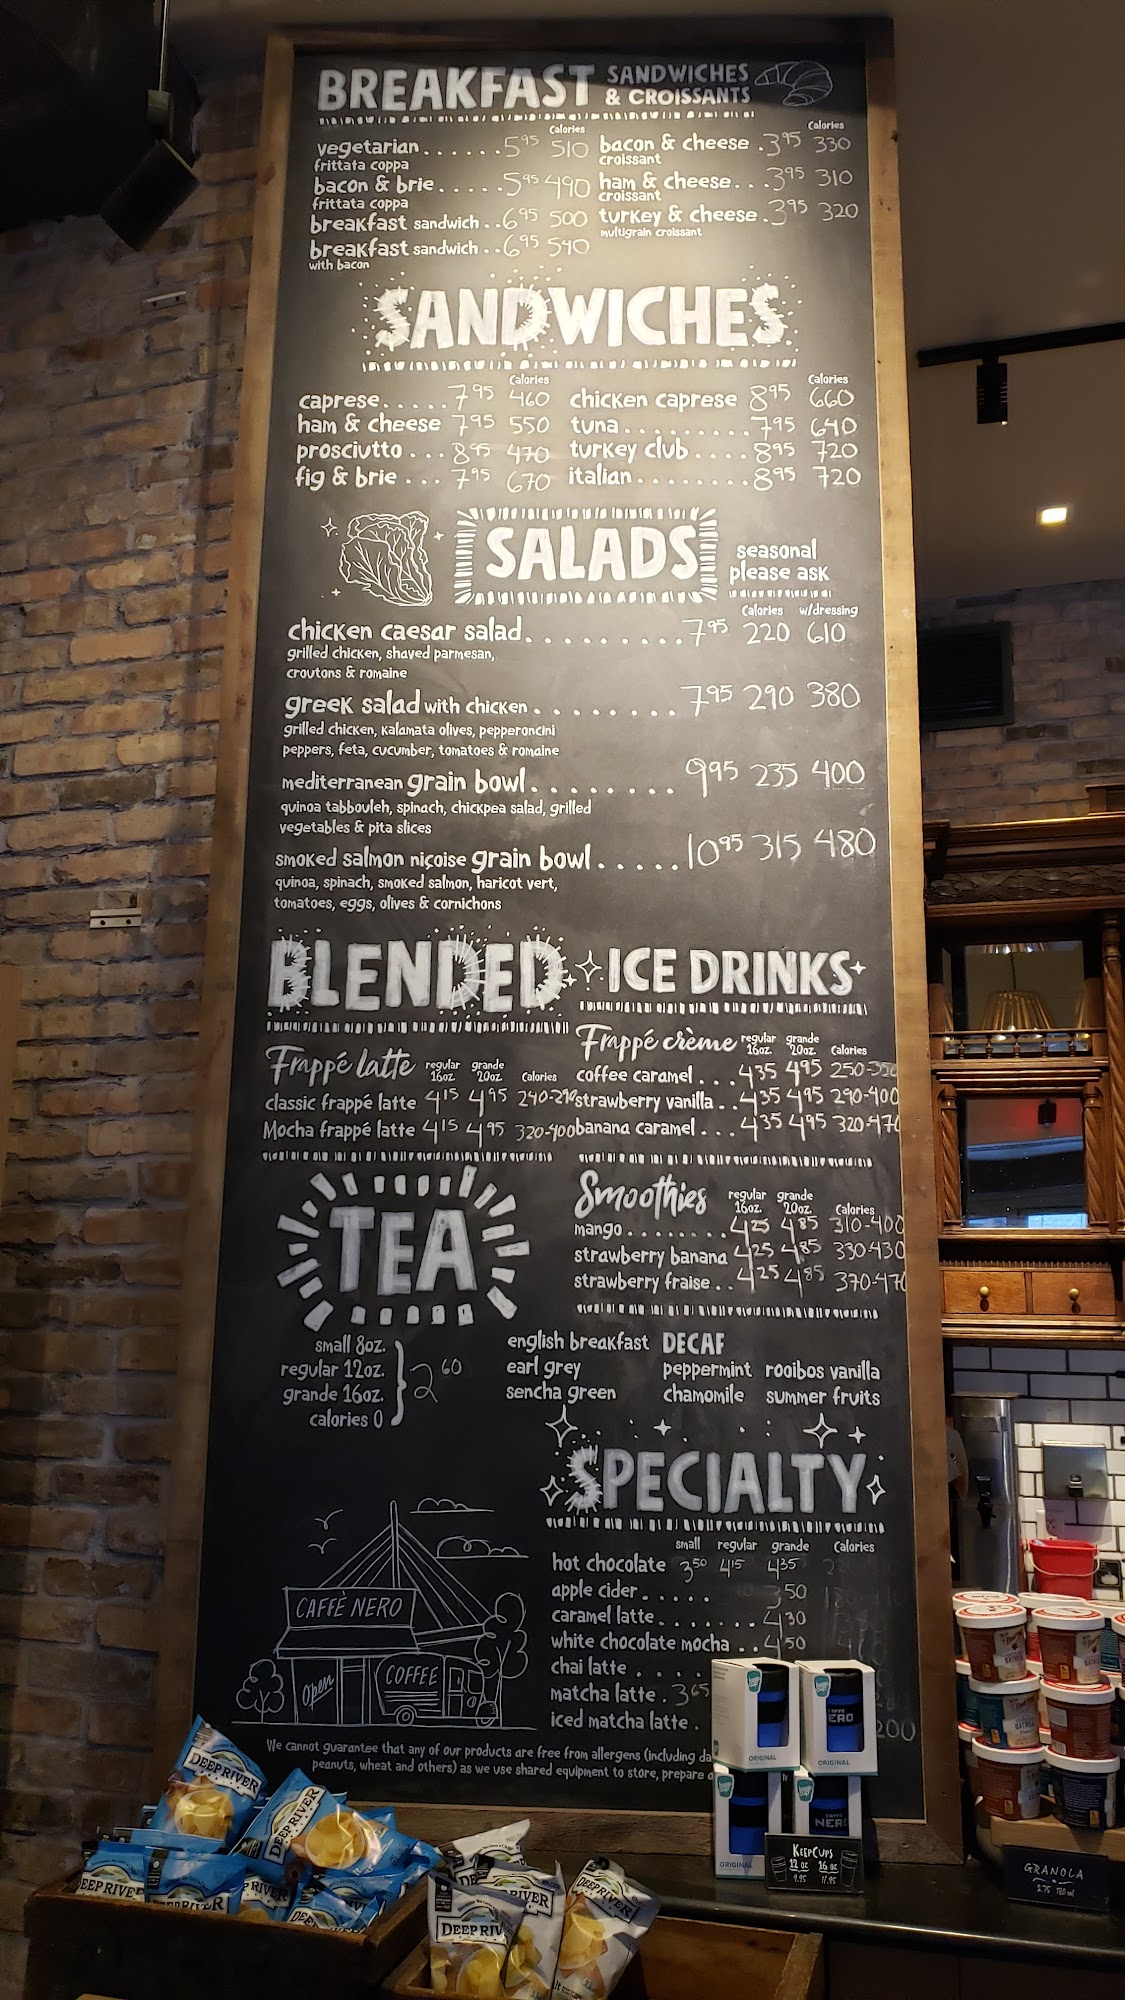 BREAKFAST SANDWICHES & CROISSANTS
Calories
vegetarian......5.95 510
frittata coppa
bacon & brie.....5.95 490
frittata coppa
breakfast sandwich..6.95 500
breakfast sandwich..6.95 540
with bacon
Calories
bacon & cheese.3.95 330
croissant
ham & cheese...3.95 310
croissant
turkey & cheese.3.95 320
multigrain croissant
SANDWICHES
Calories
caprese.....7.95 460
ham & cheese 7.95 550
prosciutto...8.95 470
fig & brie...7.95 670
Calories
chicken caprese 8.95 660
tuna.........7.95 640
turkey club....8.95 720
italian........8.95 720
SALADS
seasonal
please ask
Calories w/dressing
chicken caesar salad.........7.95 220 610
grilled chicken, shaved parmesan,
croutons & romaine
greek salad with chicken........7.95 290 380
grilled chicken, kalamata olives, pepperoncini
peppers, feta, cucumber, tomatoes & romaine
mediterranean grain bowl........9.95 235 400
quinoa tabbouleh, spinach, chickpea salad, grilled
vegetables & pita slices
smoked salmon niçoise grain bowl.....10.95 315 480
quinoa, spinach, smoked salmon, haricot vert,
tomatoes, eggs, olives & cornichons
BLENDED ICE DRINKS
Frappé latte regular 16oz. grande 20oz. Calories
classic frappé latte 4.15 4.95 240-290
Mocha frappé latte 4.15 4.95 320-400
Frappé crème regular 16oz. grande 20oz. Calories
coffee caramel...4.35 4.95 250-350
strawberry vanilla..4.35 4.95 290-400
banana caramel...4.35 4.95 320-470
Smoothies regular 16oz. grande 20oz. Calories
mango........4.25 4.85 310-400
strawberry banana 4.25 4.85 330-430
strawberry fraise..4.25 4.85 370-470
TEA
small 8oz.
regular 12oz.
grande 16oz.
calories 0
2.60
english breakfast
earl grey
sencha green
DECAF
peppermint rooibos vanilla
chamomile summer fruits
SPECIALTY
small regular grande Calories
hot chocolate 3.50 4.15 4.35
apple cider..... 3.50
caramel latte.......4.30
white chocolate mocha..4.50
chai latte....
matcha latte.3.65
iced matcha latte. 200
CAFFÈ NERO
Open
COFFEE
We cannot guarantee that any of our products are free from allergens (including
peanuts, wheat and others) as we use shared equipment to store, prepare
CAFFE
NERO
ORIGINAL
ORIGINAL
ORIGINAL
CAFFE
NERO
KEEPCUPS
12 oz 16 oz
9.95 11.95
GRANOLA
DEEP RIVER
DEEP RIVER
DEEP RIVER
DEEP RIVER